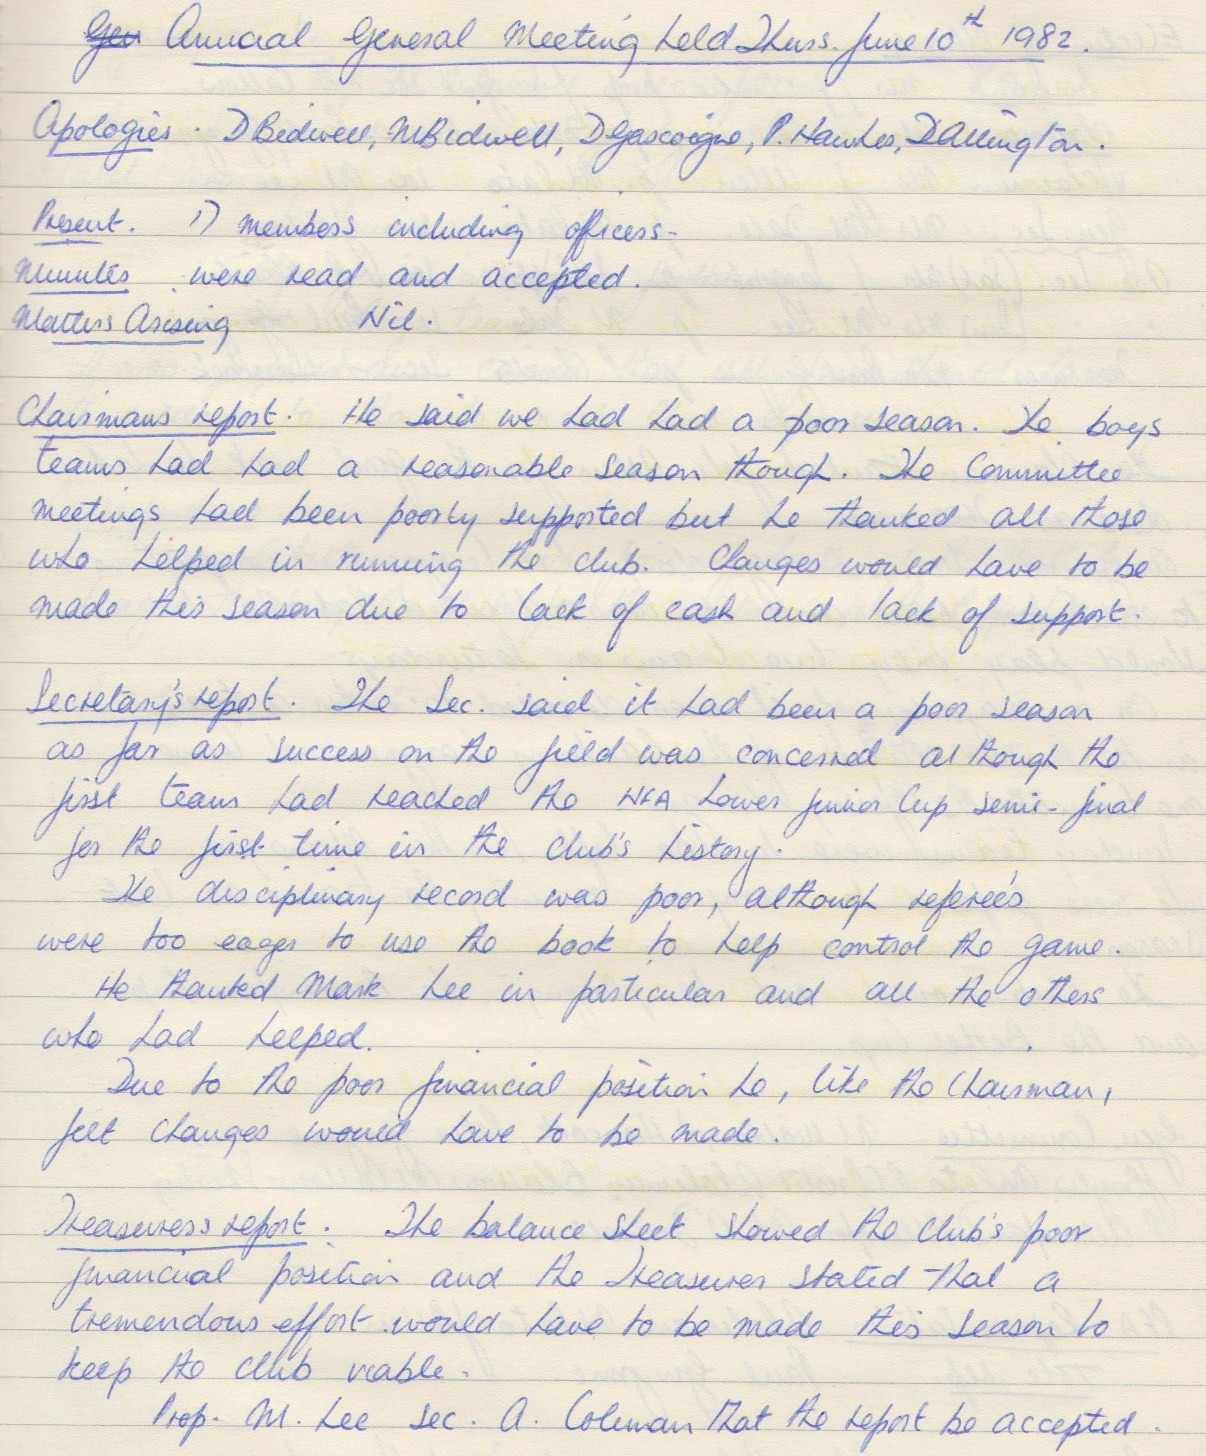 Gen Annual General Meeting held Thurs. June 10th 1982.
Apologies. D Bidwell, M Bidwell, D Gascoigne, P. Hawkes, D Allington.
Present. 17 members including officers.
Minutes were read and accepted.
Matters Arising Nil.
Chairmans report. He said we had had a poor season. The boys
teams had had a reasonable season though. The Committee
meetings had been poorly supported but he thanked all those
who helped in running the club. Changes would have to be
made this season due to lack of cash and lack of support.
Secretary's report. The Sec. said it had been a poor season
as far as success on the field was concerned although the
first team had reached the NFA Lower Junior Cup semi-final
for the first time in the club's history.
The disciplinary record was poor, although referee's
were too eager to use the book to help control the game.
He thanked Mark Lee in particular and all the others
who had helped.
Due to the poor financial position he, like the Chairman,
felt changes would have to be made.
Treasurers report. The balance sheet showed the club's poor
financial position and the Treasurer stated that a
tremendous effort would have to be made this season to
keep the club viable.
Prop. M. Lee Sec. A. Coleman that the report be accepted.